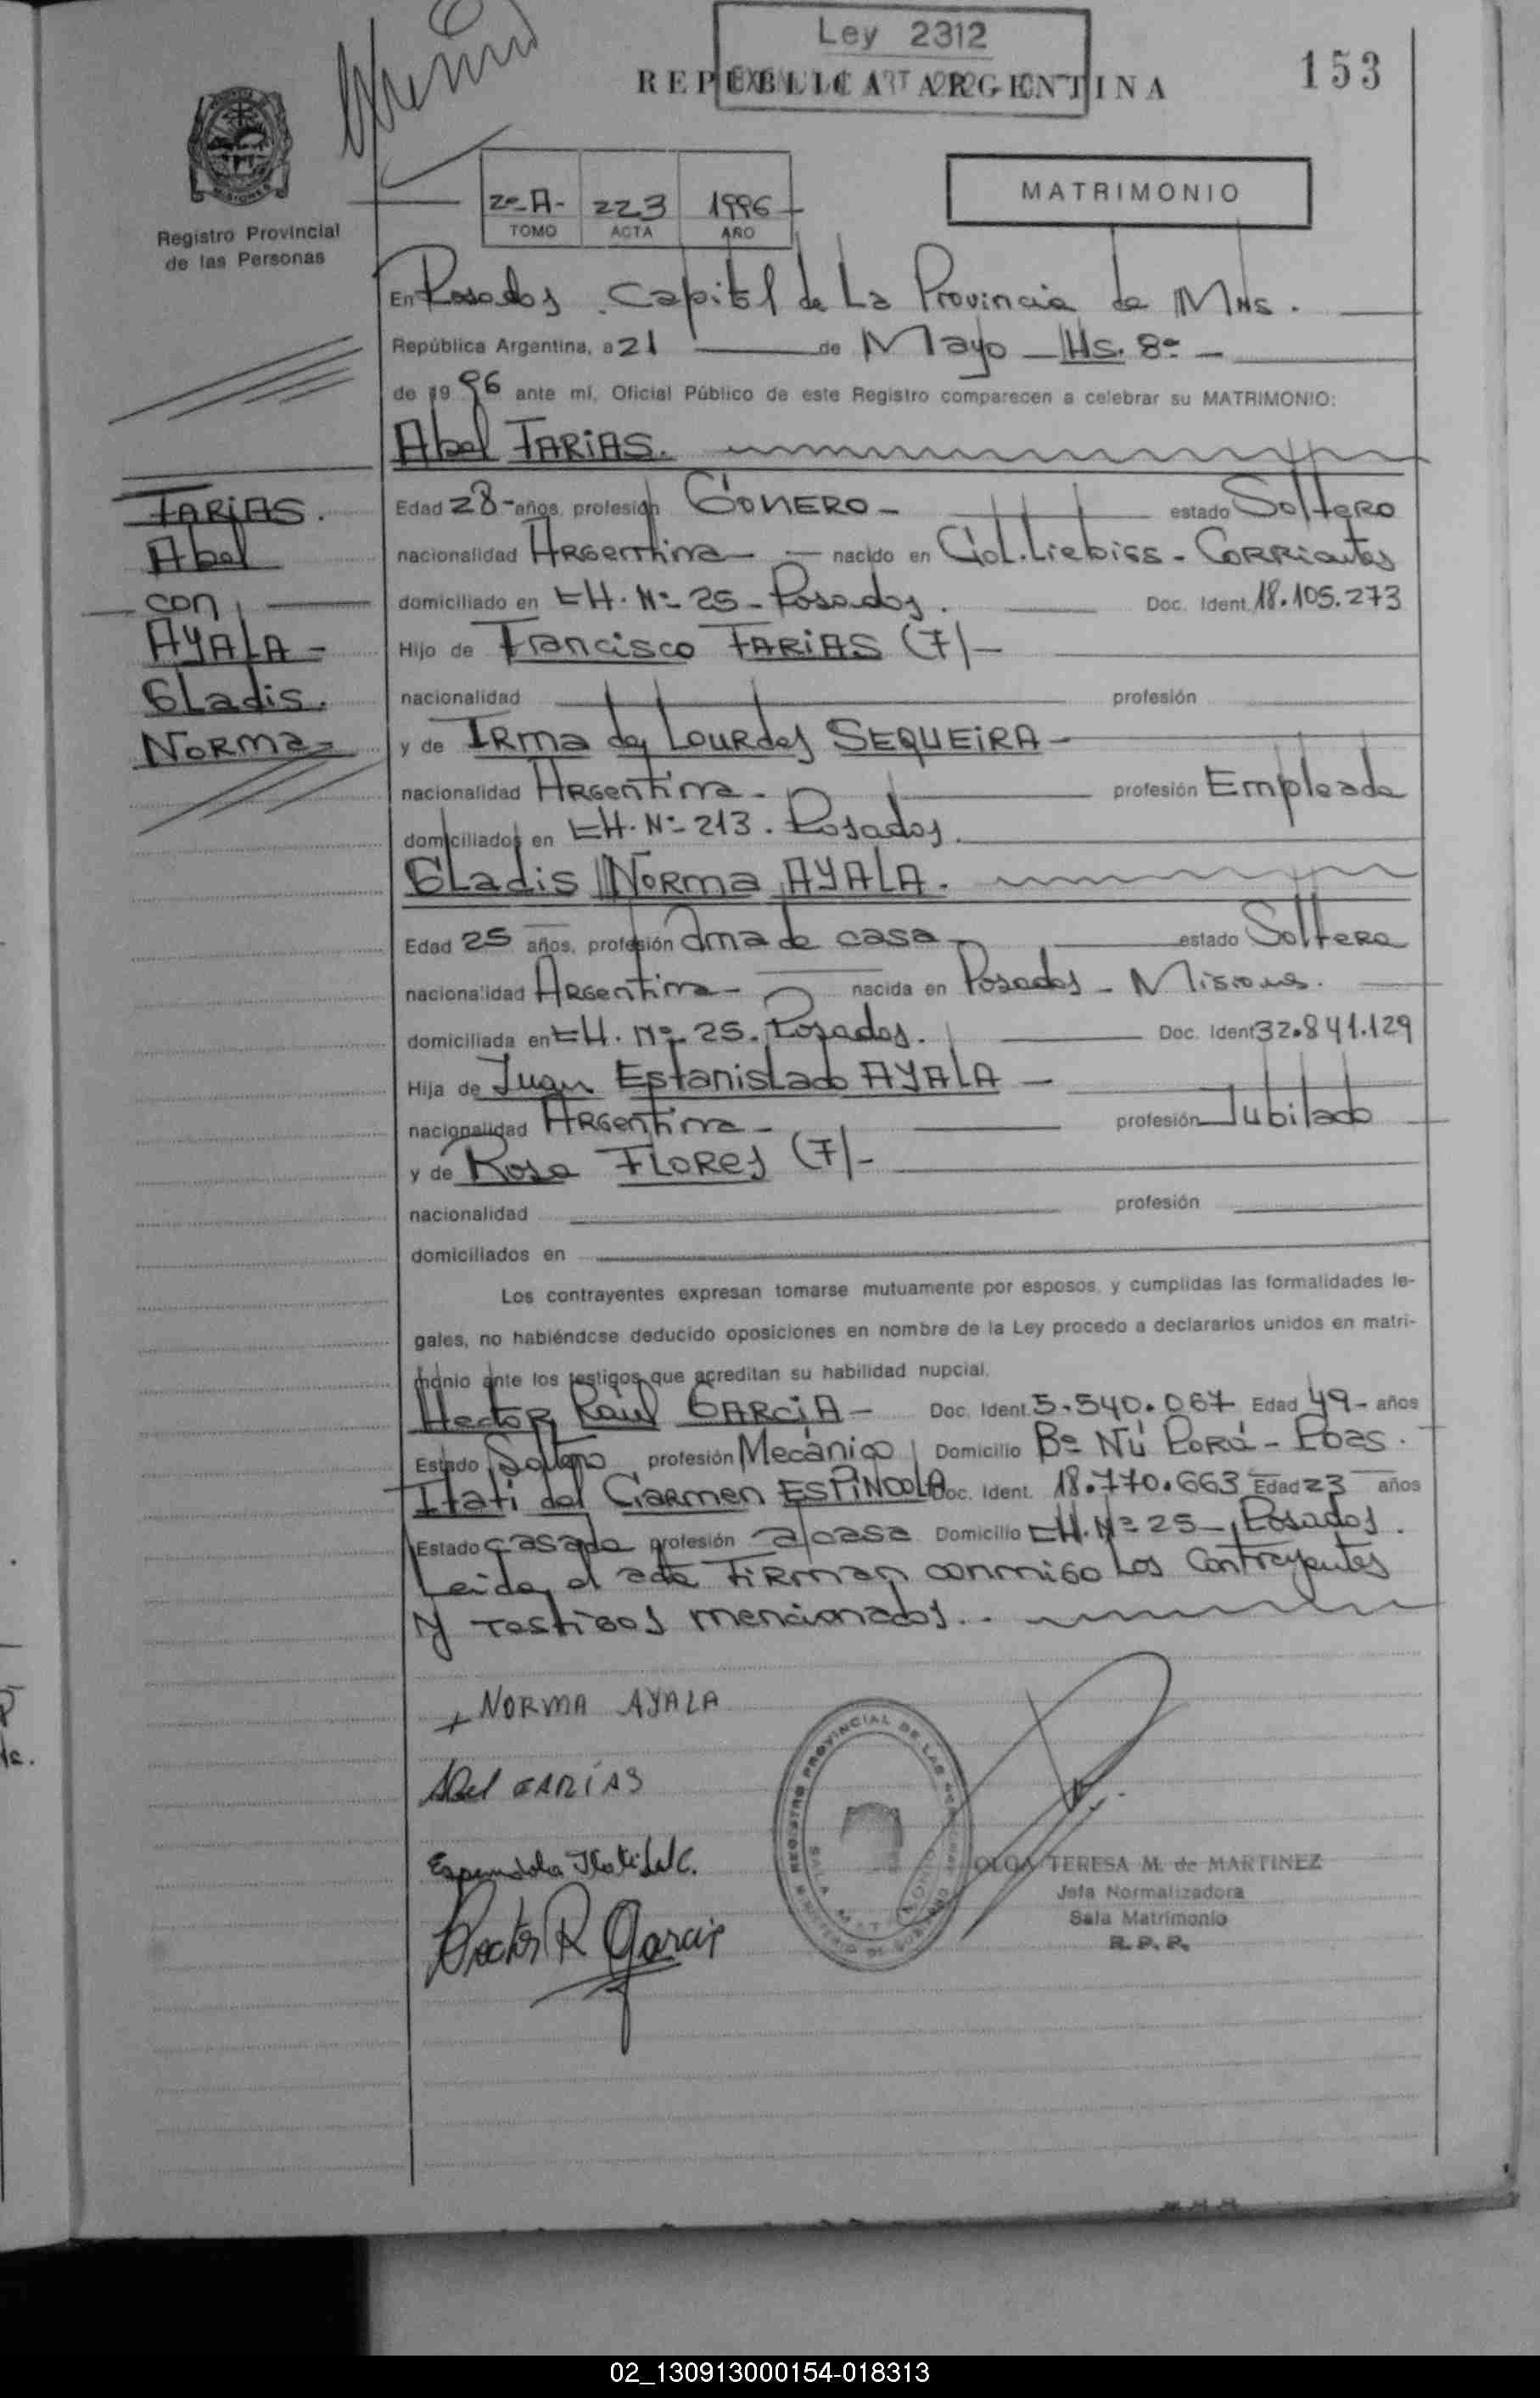 Ley 2312
153
REPUBLICA ARGENTINA
2º A- 223 1996
TOMO ACTA AÑO
MATRIMONIO
Registro Provincial
de las Personas
En Posadas, Capital de La Provincia de Mns.
República Argentina, a 21 de Mayo Hs. 8º
de 1996 ante mí, Oficial Público de este Registro comparecen a celebrar su MATRIMONIO:
Abel FARIAS.
FARIAS.
Abel
con
AYALA -
GLadis.
NORMA-
Edad 28- años, profesión estado Soltero
nacionalidad Argentina - nacido en Col. Liebigs - Corrientes
domiciliado en CH. Nº 25 - Posadas. Doc. Ident. 18.105.273
Hijo de Francisco FARIAS (F)-
nacionalidad profesión
y de Irma de Lourdes SEQUEIRA -
nacionalidad Argentina - profesión Empleada
domiciliados en CH. Nº 213. Posadas.
GLadis Norma AYALA.
Edad 25 años, profesión Ama de casa - estado Soltera
nacionalidad Argentina - nacida en Posadas - Misiones.
domiciliada en CH. Nº 25. Posadas. Doc. Ident 32.841.129
Hija de Juan Estanislado AYALA -
nacionalidad Argentina - profesión Jubilado
y de Rosa FLORES (F)-
nacionalidad profesión
domiciliados en
Los contrayentes expresan tomarse mutuamente por esposos, y cumplidas las formalidades le-
gales, no habiéndose deducido oposiciones en nombre de la Ley procedo a declararlos unidos en matri-
monio ante los testigos que acreditan su habilidad nupcial.
Hector Raúl GARCIA - Doc. Ident. 5.540.067 Edad 49- años
Estado Soltero profesión Mecánico Domicilio Bº Ñú Porá - Pdas.
Itati del Carmen ESPINDOLA Doc. Ident. 18.770.663 Edad 23 años
Estado casada profesión a/casa Domicilio CH. Nº 25 - Posadas.
Leida el acta Firman conmigo Los Contrayentes
y Testigos mencionados.
+ NORMA AYALA
Abel FARÍAS
Espindola Itati del C.
Hector R Garcia
REGISTRO PROVINCIAL DE LAS PERSONAS
SALA MATRIMONIO
MINISTERIO DE GOBIERNO
OLGA TERESA M. de MARTINEZ
Jefa Normalizadora
Sala Matrimonio
R. P. P.
02_130913000154-018313